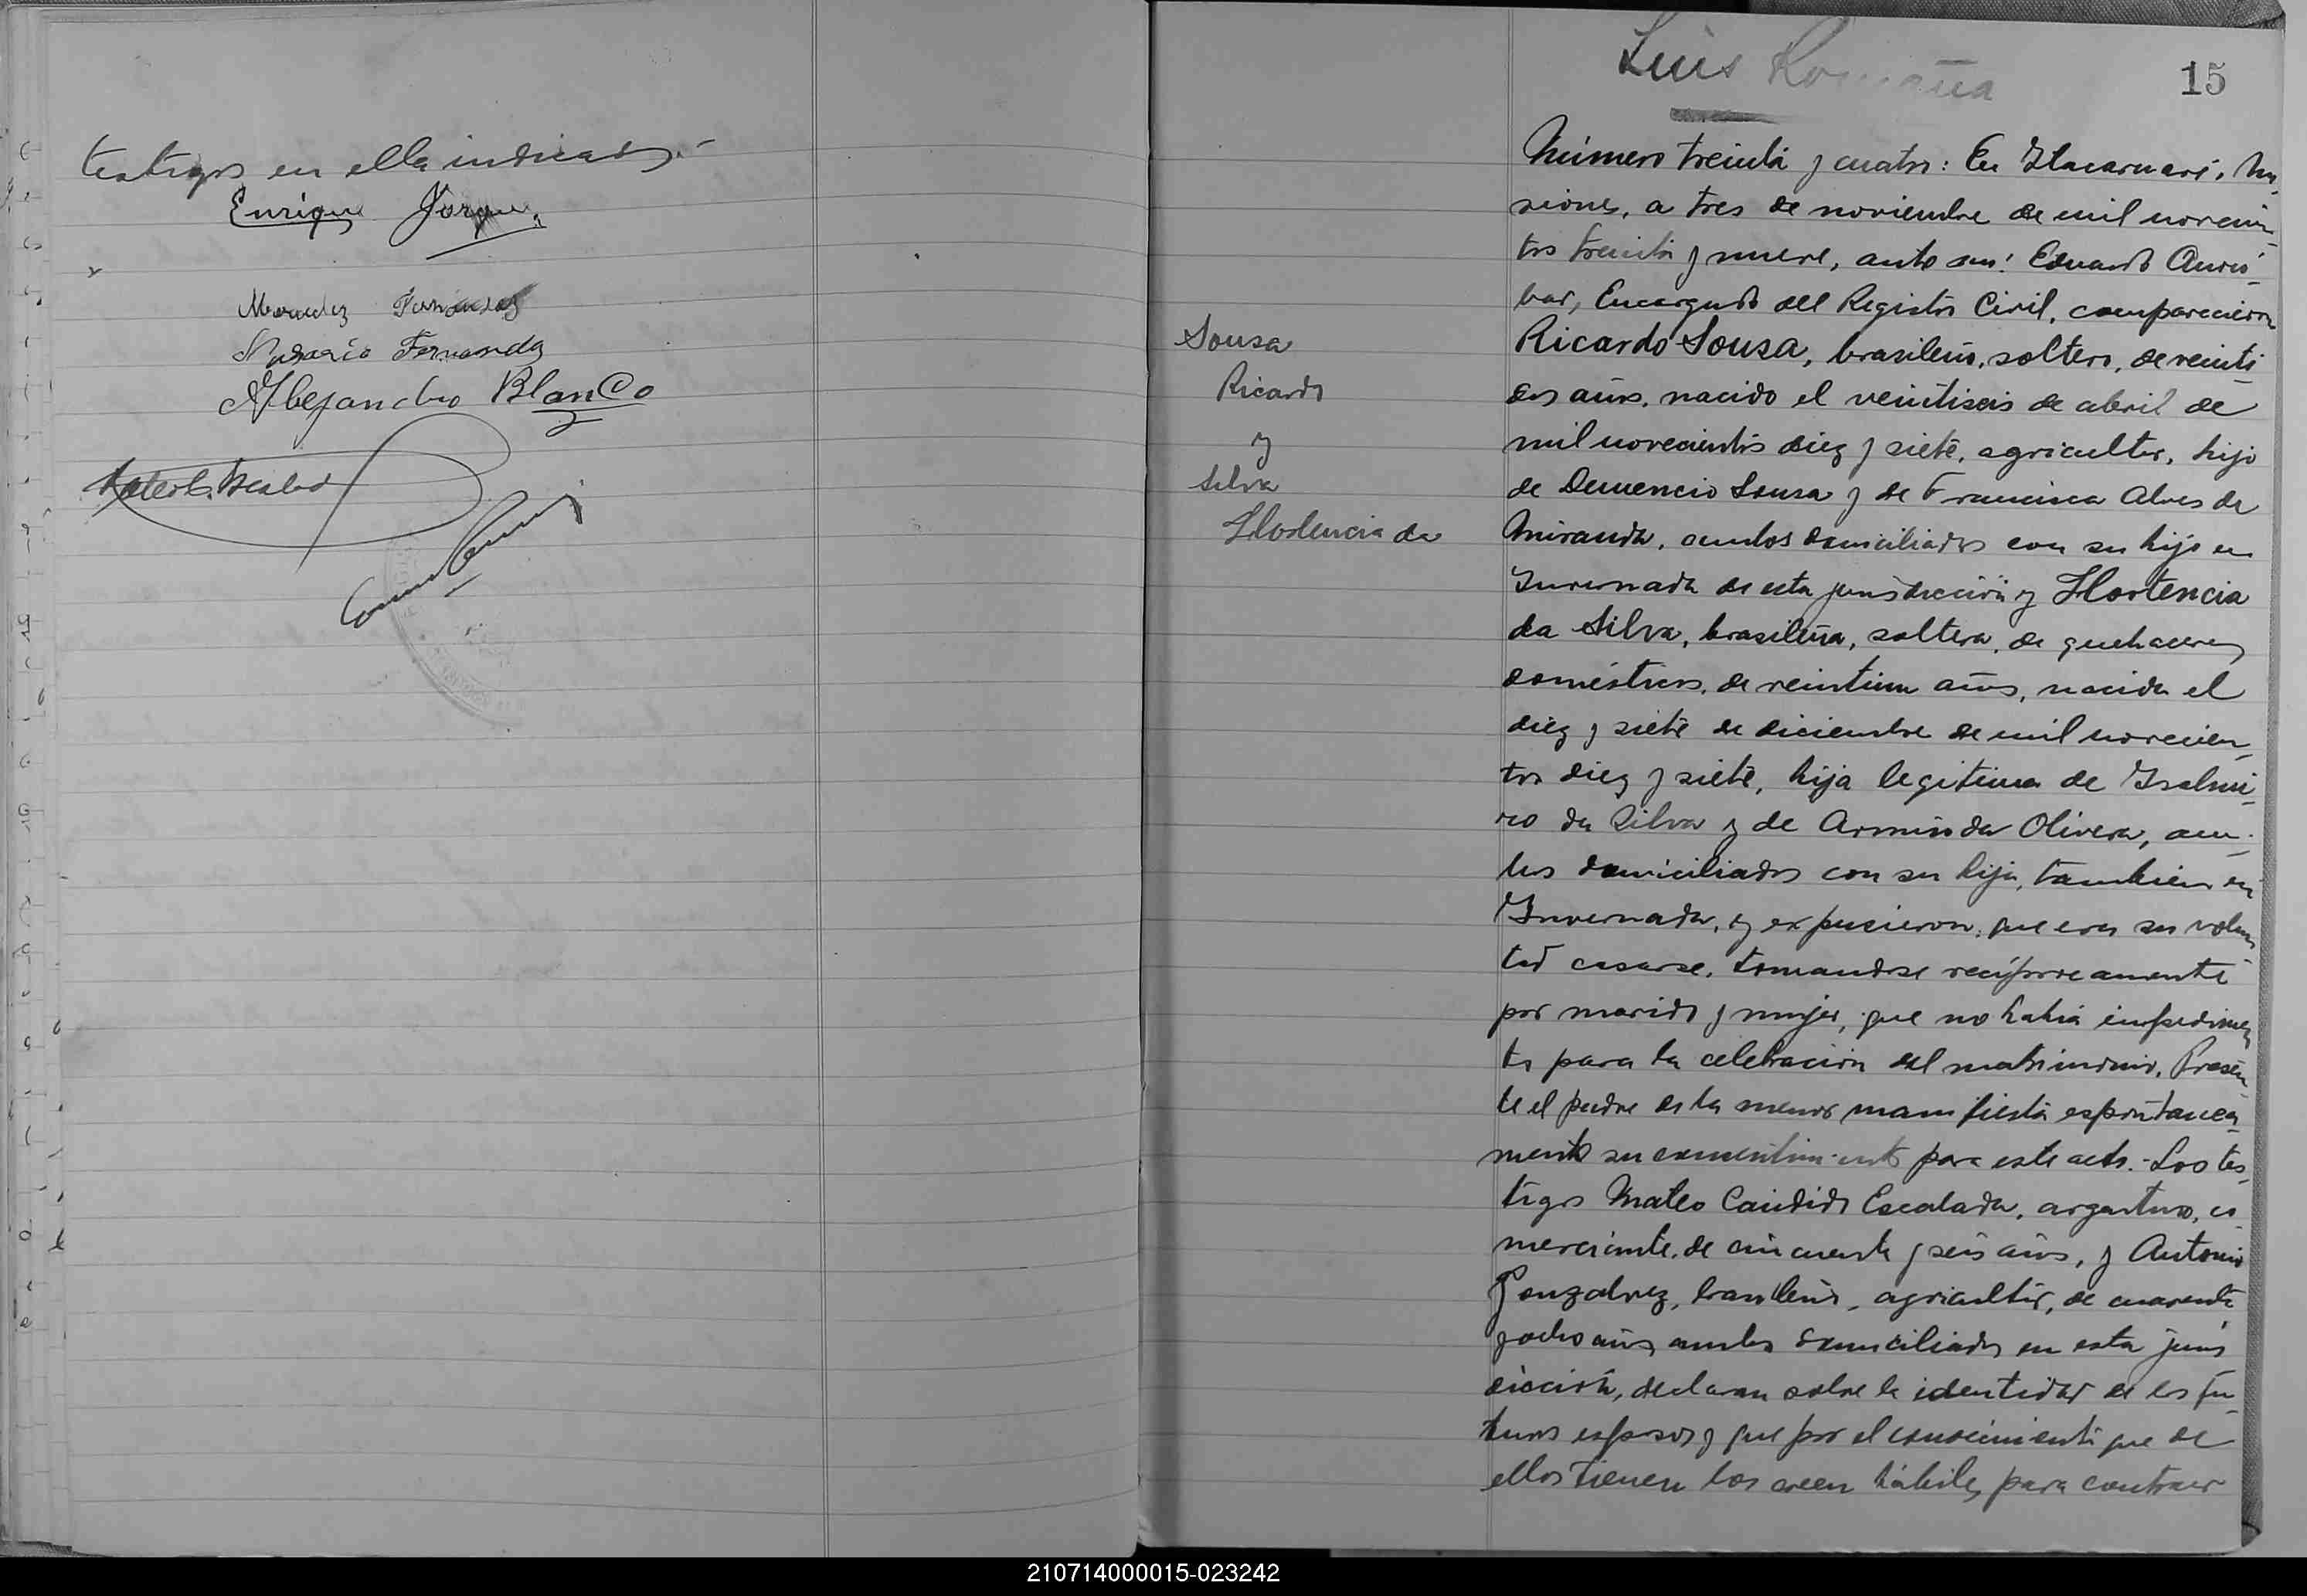 testigos en ella indicados.-
Enrique Jorge
Mercedes Fernandez
Nazario Fernandez
Alejandro Blanco
Luis Romaña
15
Número treinta y cuatro: En Itacaruaré, Mi-
siones, a tres de noviembre de mil novecien-
tos treinta y nueve, ante mi: Eduardo
bar, Encargado del Registro Civil, comparecieron
Sousa
Ricardo
y
Silva
Hortencia da
Ricardo Sousa, brasileño, soltero, de veinti
dos años, nacido el veintiseis de abril de
mil novecientos diez y siete, agricultor, hijo
de Demencio Sousa y de Francisca Alves de
Miranda, ambos domiciliados con su hijo en
Invernada de esta jurisdicción y Hortencia
da Silva, brasileña, soltera, de quehaceres
domésticos, de veintiun años, nacida el
diez y siete de diciembre de mil novecien-
tos diez y siete, hija legitima de Isalmi-
ro da Silva y de Arminda Olivera, am-
bos domiciliados con su hija, tambien en
Invernada, y expusieron: que era su volun
tad casarse, tomandose reciprocamente
por marido y mujer, que no habia impedimen
to para la celebracion del matrimonio. Presen
te el padre de la menor manifiesta espontanea-
mente su consentimiento para este acto.- Los tes-
tigos Mateo Candido Escalada, argentino, co
merciante, de cincuenta y seis años, y Antonio
Gonzalvez, brasileño, agricultor, de cuarenta
y ocho años ambos domiciliados en esta juris
dicción, declaran sobre la identidad de los fu-
turos esposos y que por el conocimiento que de
ellos tienen los creen hábiles para contraer
210714000015-023242